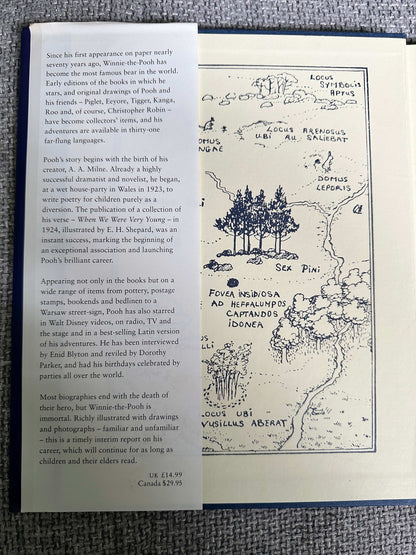 Since his first appearance on paper nearly
seventy years ago, Winnie-the-Pooh has
become the most famous bear in the world.
Early editions of the books in which he
stars, and original drawings of Pooh and
his friends – Piglet, Eeyore, Tigger, Kanga,
Roo and, of course, Christopher Robin –
have become collectors' items, and his
adventures are available in thirty-one
far-flung languages.
Pooh's story begins with the birth of his
creator, A. A. Milne. Already a highly
successful dramatist and novelist, he began,
at a wet house-party in Wales in 1923, to
write poetry for children purely as a
diversion. The publication of a collection of
his verse – When We Were Very Young – in
1924, illustrated by E. H. Shepard, was an
instant success, marking the beginning of
an exceptional association and launching
Pooh's brilliant career.
Appearing not only in the books but on a
wide range of items from pottery, postage
stamps, bookends and bedlinen to a
Warsaw street-sign, Pooh has also starred
in Walt Disney videos, on radio, TV and
the stage and in a best-selling Latin version
of his adventures. He has been interviewed
by Enid Blyton and reviled by Dorothy
Parker, and had his birthdays celebrated by
parties all over the world.
Most biographies end with the death of
their hero, but Winnie-the-Pooh is
immortal. Richly illustrated with drawings
and photographs – familiar and unfamiliar
– this is a timely interim report on his
career, which will continue for as long as
children and their elders read.
UK £14.99
Canada $29.95
LOCUS
SYMBOLIS
APTUS
LOCUS ARENOSUS
UBI AU SALIEBAT
DOMUS
NGAE
DOMUS
LEPORIS
SEX PINI
FOVEA INSIDIOSA
AD HEFFALUMPOS
CAPTANDOS
IDONEA
LLI
LOCUS UBI
VUSILLUS ABERAT